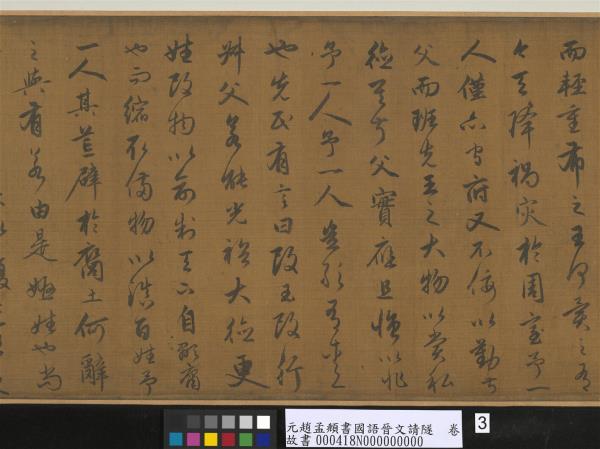 而輕重布之王何異之有
今天降禍災於周室予一
人僅亦守府又不佞以勤叔
父而班先王之大物以賞私
德其叔父實應且憎以非
予一人予一人豈敢有愛
也先民有言曰改玉改行
叔父若能光裕大德更
姓改物以創制天下自顯庸
也而縮取備物以鎮百姓予
一人其辟於裔土何辭
之與有若由是姬姓也尚
元趙孟頫書國語晉文請隧 卷
故書 000418N000000000
3